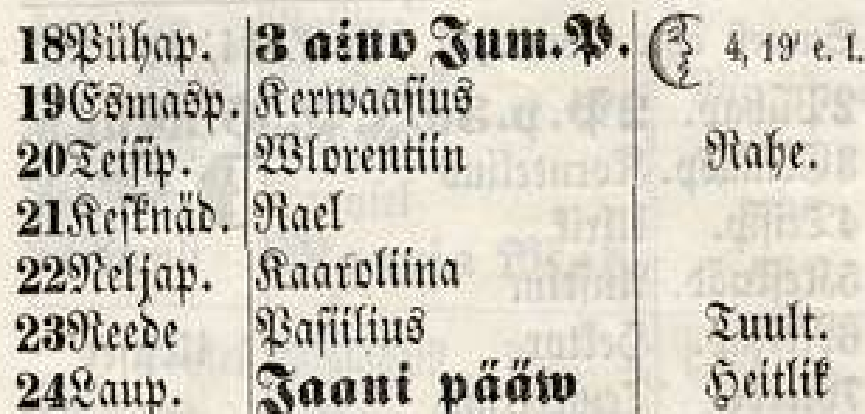 18 Pühap. 3 aino Jum. P. 4, 19' e. l.
19 Esmasp. Kerwaasius
20 Teisip. Wlorentiin Rahe.
21 Kesknäd. Rael
22 Neljap. Kaaroliina
23 Reede Pasiilius Tuult.
24 Laup. Jaani pääw Heitlik